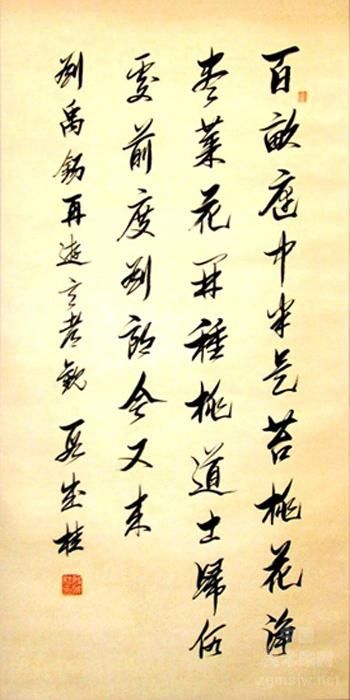 百畝庭中半是苔桃花淨
盡菜花開種桃道士歸何
處前度劉郎今又來
劉禹錫再遊玄都觀 段成桂
zgmsjw.net